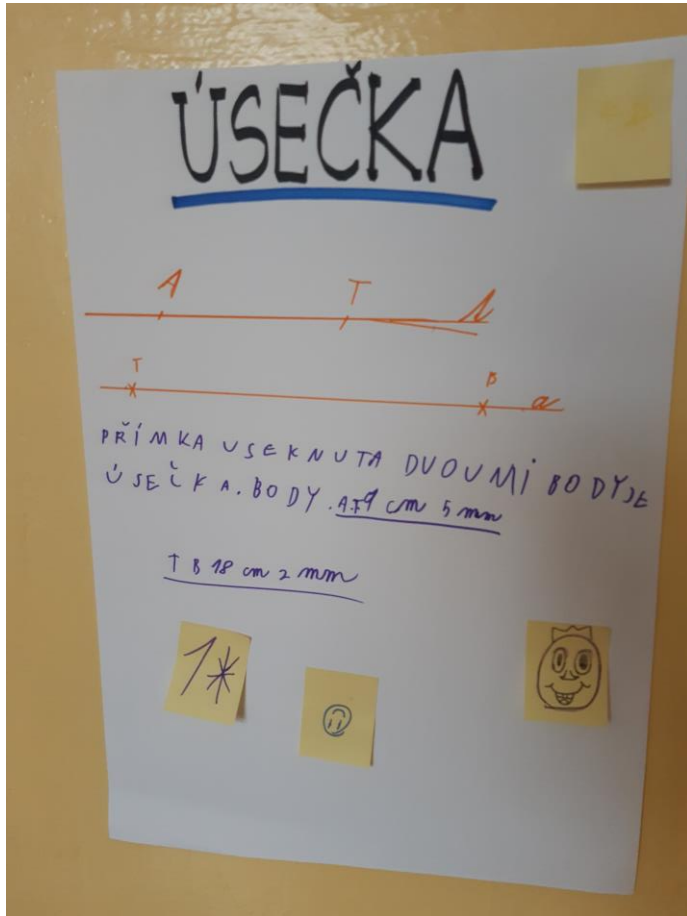 ÚSEČKA
A T
T B a
PŘÍMKA USEKNUTA DVOUMI BODY JE
ÚSEČKA. BODY. AT 9 cm 5 mm
T B 18 cm 2 mm
1*